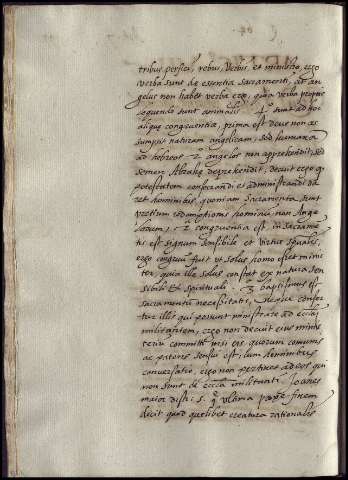 tribus persici, rebus, verbis, et ministro, ergo
verba sunt de essentia sacramenti, at an-
gelus non habet verba ergo, quia verba proprie
loquendo sunt animaliũ. sunt ad hoc
aliquę congruentię, prima est deus non as-
sumpsit naturam angelicam, sed humanã
ad hebreos 2º angelos non apprehendit, sed
semen Abrahę deprehendit, decuit ergo q̃
potestatem consecrandi et administrandi da
ret hominibus, quoniam sacramenta sunt
pretium redemptionis hominũ, non Ange
lorum; 2ª congruentia est, in sacramẽ
tis est signum sensibile et virtus spũalis,
ergo congruũ fuit ut solus homo esset minis
ter, quia ille solus constat ex natura sen
sibili et spirituali. 3ª baptismus est
sacramentũ necessitatis, neque confer
tur illis qui possunt ministrare ad eccłã
militantem, ergo non decuit eius minis
terium committi nisi eis quorum comunis
ac patens sensui est, cum hominibus
conversatio, ergo non pertinet ad eos qui
non sunt de eccłã militanti. Joanes
maior dist. 5. q. ultima paulo finem
dicit quod quęlibet creatura rationalis